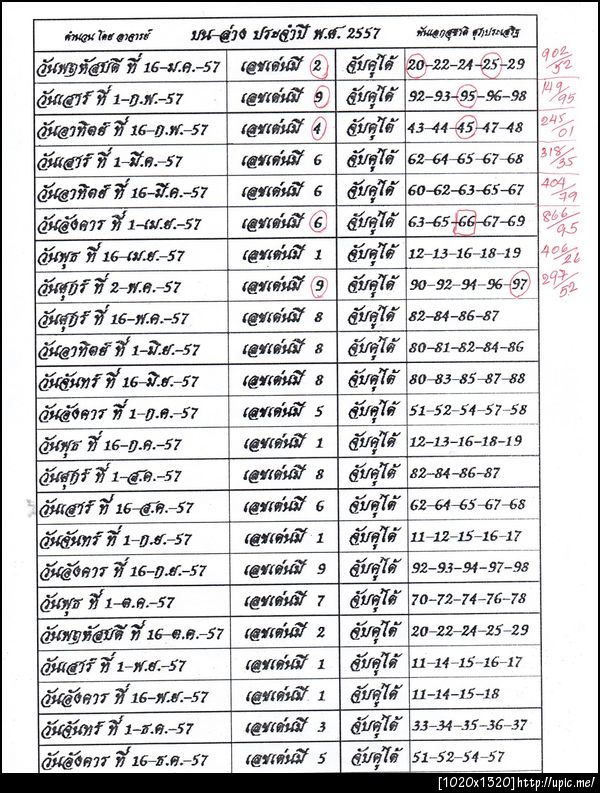 คำนวน โดย อาจารย์ บน-ล่าง ประจำปี พ.ศ. 2557 พันเอกสุชาติ สุภประเสริฐ
วันพฤหัสบดี ที่ 16-ม.ค.-57 เลขเด่นมี 2 จับคู่ได้ 20-22-24-25-29 902/52
วันเสาร์ ที่ 1-ก.พ.-57 เลขเด่นมี 9 จับคู่ได้ 92-93-95-96-98 149/95
วันอาทิตย์ ที่ 16-ก.พ.-57 เลขเด่นมี 4 จับคู่ได้ 43-44-45-47-48 245/01
วันเสาร์ ที่ 1-มี.ค.-57 เลขเด่นมี 6 จับคู่ได้ 62-64-65-67-68 318/35
วันอาทิตย์ ที่ 16-มี.ค.-57 เลขเด่นมี 6 จับคู่ได้ 60-62-63-65-67 404/79
วันอังคาร ที่ 1-เม.ย.-57 เลขเด่นมี 6 จับคู่ได้ 63-65-66-67-69 866/95
วันพุธ ที่ 16-เม.ย.-57 เลขเด่นมี 1 จับคู่ได้ 12-13-16-18-19 406/26
วันศุกร์ ที่ 2-พ.ค.-57 เลขเด่นมี 9 จับคู่ได้ 90-92-94-96-97 297/52
วันศุกร์ ที่ 16-พ.ค.-57 เลขเด่นมี 8 จับคู่ได้ 82-84-86-87
วันอาทิตย์ ที่ 1-มิ.ย.-57 เลขเด่นมี 8 จับคู่ได้ 80-81-82-84-86
วันจันทร์ ที่ 16-มิ.ย.-57 เลขเด่นมี 8 จับคู่ได้ 80-83-85-87-88
วันอังคาร ที่ 1-ก.ค.-57 เลขเด่นมี 5 จับคู่ได้ 51-52-54-57-58
วันพุธ ที่ 16-ก.ค.-57 เลขเด่นมี 1 จับคู่ได้ 12-13-16-18-19
วันศุกร์ ที่ 1-ส.ค.-57 เลขเด่นมี 8 จับคู่ได้ 82-84-86-87
วันเสาร์ ที่ 16-ส.ค.-57 เลขเด่นมี 6 จับคู่ได้ 62-64-65-67-68
วันจันทร์ ที่ 1-ก.ย.-57 เลขเด่นมี 1 จับคู่ได้ 11-12-15-16-17
วันอังคาร ที่ 16-ก.ย.-57 เลขเด่นมี 9 จับคู่ได้ 92-93-94-97-98
วันพุธ ที่ 1-ต.ค.-57 เลขเด่นมี 7 จับคู่ได้ 70-72-74-76-78
วันพฤหัสบดี ที่ 16-ต.ค.-57 เลขเด่นมี 2 จับคู่ได้ 20-22-24-25-29
วันเสาร์ ที่ 1-พ.ย.-57 เลขเด่นมี 1 จับคู่ได้ 11-14-15-16-17
วันอังคาร ที่ 16-พ.ย.-57 เลขเด่นมี 1 จับคู่ได้ 11-14-15-18
วันจันทร์ ที่ 1-ธ.ค.-57 เลขเด่นมี 3 จับคู่ได้ 33-34-35-36-37
วันอังคาร ที่ 16-ธ.ค.-57 เลขเด่นมี 5 จับคู่ได้ 51-52-54-57
[1020x1320]http://upic.me/